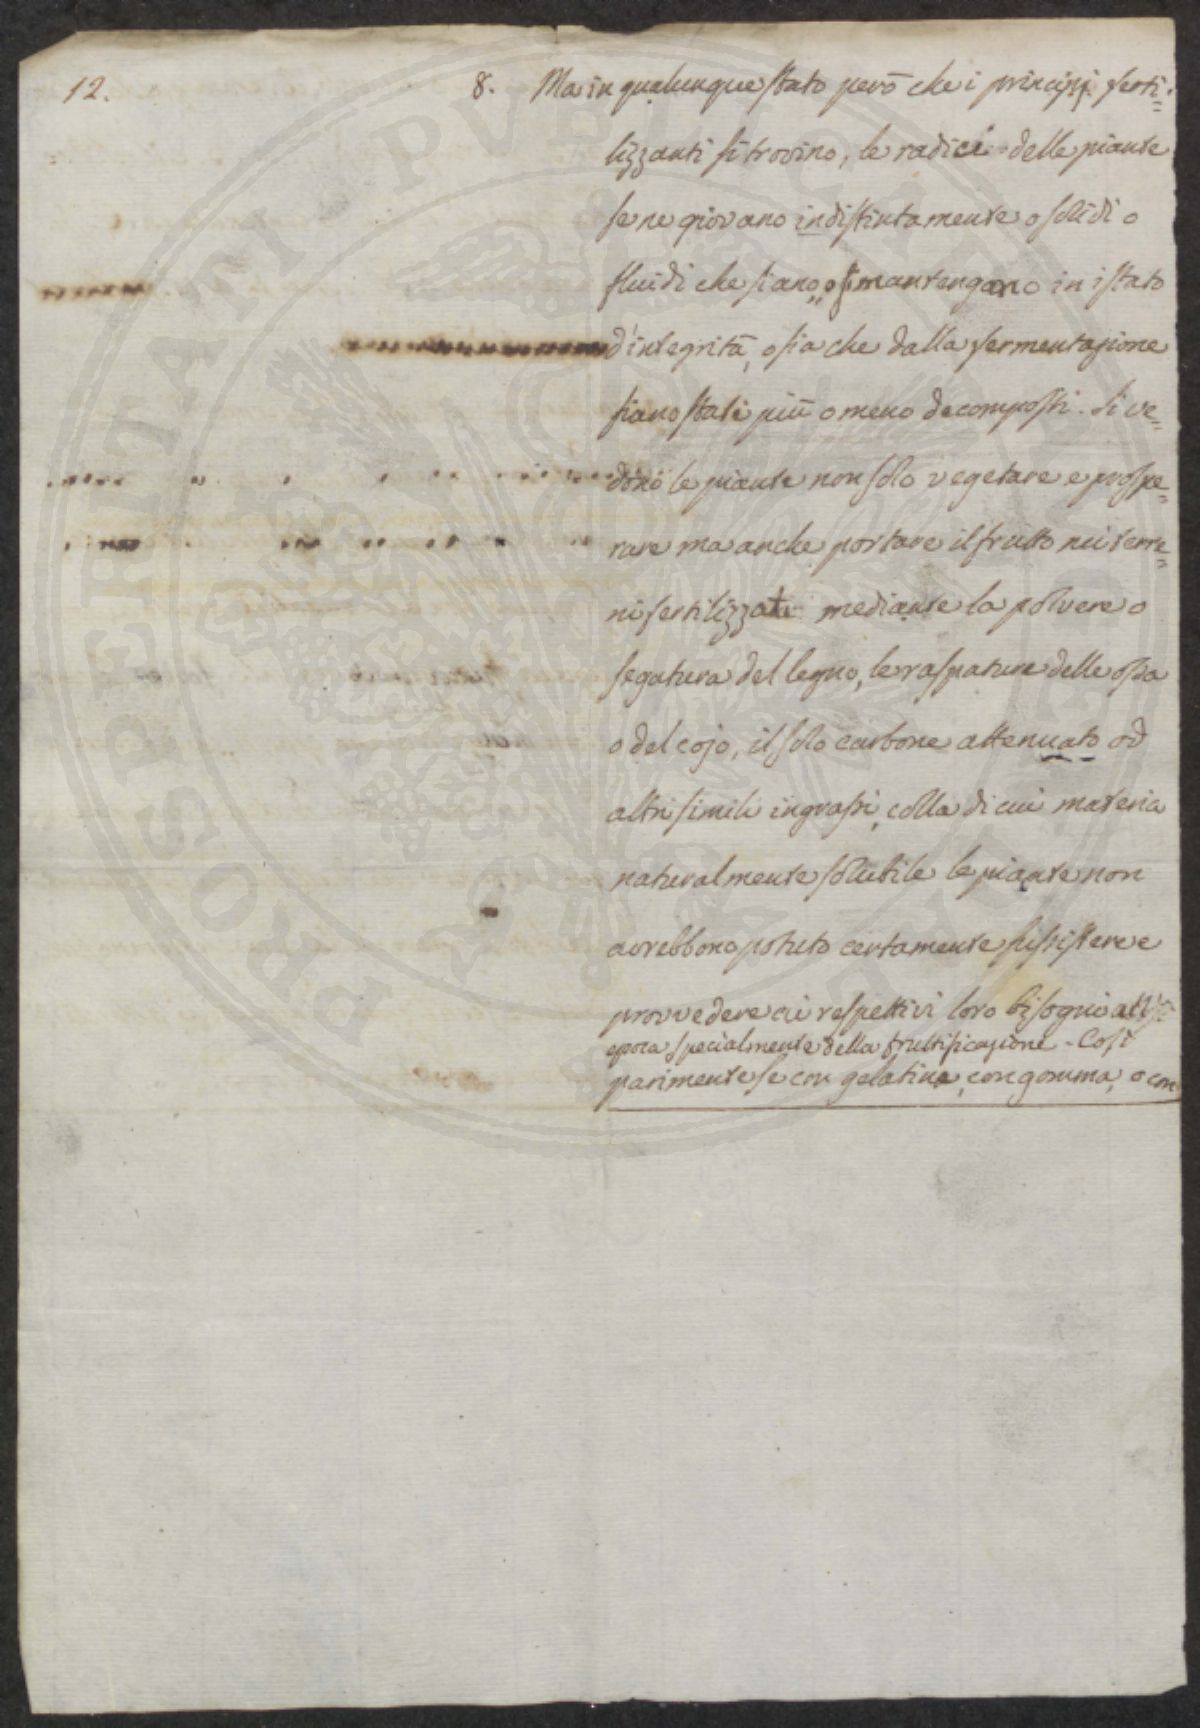 12.
8. Ma in qualunque stato però che i principj ferti=
lizzanti si trovino, le radici delle piante
se ne giovano indistintamente o solidi o
fluidi che siano, o si mantengano in istato
d'integrità, o sia che dalla fermentazione
siano stati più o meno decomposti. Si ve=
dono le piante non solo vegetare e prospe=
rare ma anche portare il frutto nei terre=
ni fertilizzati mediante la polvere o
segatura del legno, le raspature delle ossa
o del cojo, il solo carbone attenuato od
altri simili ingrassi, colla di cui materia
naturalmente solubile le piante non
avrebbono potuto certamente sussistere e
provvedere ai respettivi loro bisogni all'
epoca specialmente della fruttificazione - Così
parimente se con gelatina, con gomma, o con
PROSPERITATI PVBLICAE